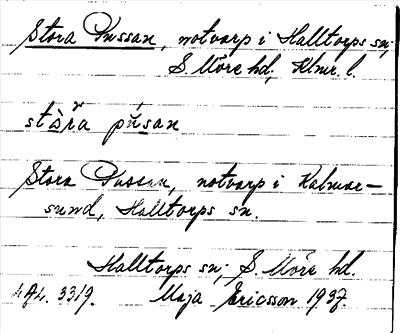 Stora Pussan, notvarp i Halltorps sn,
S. Möre hd, Klmr. l.
stòra púsan
Stora Pussan, notvarp i Kalmar-
sund, Halltorps sn.
Halltorps sn, S. Möre hd.
3319. Maja Ericsson 1937.